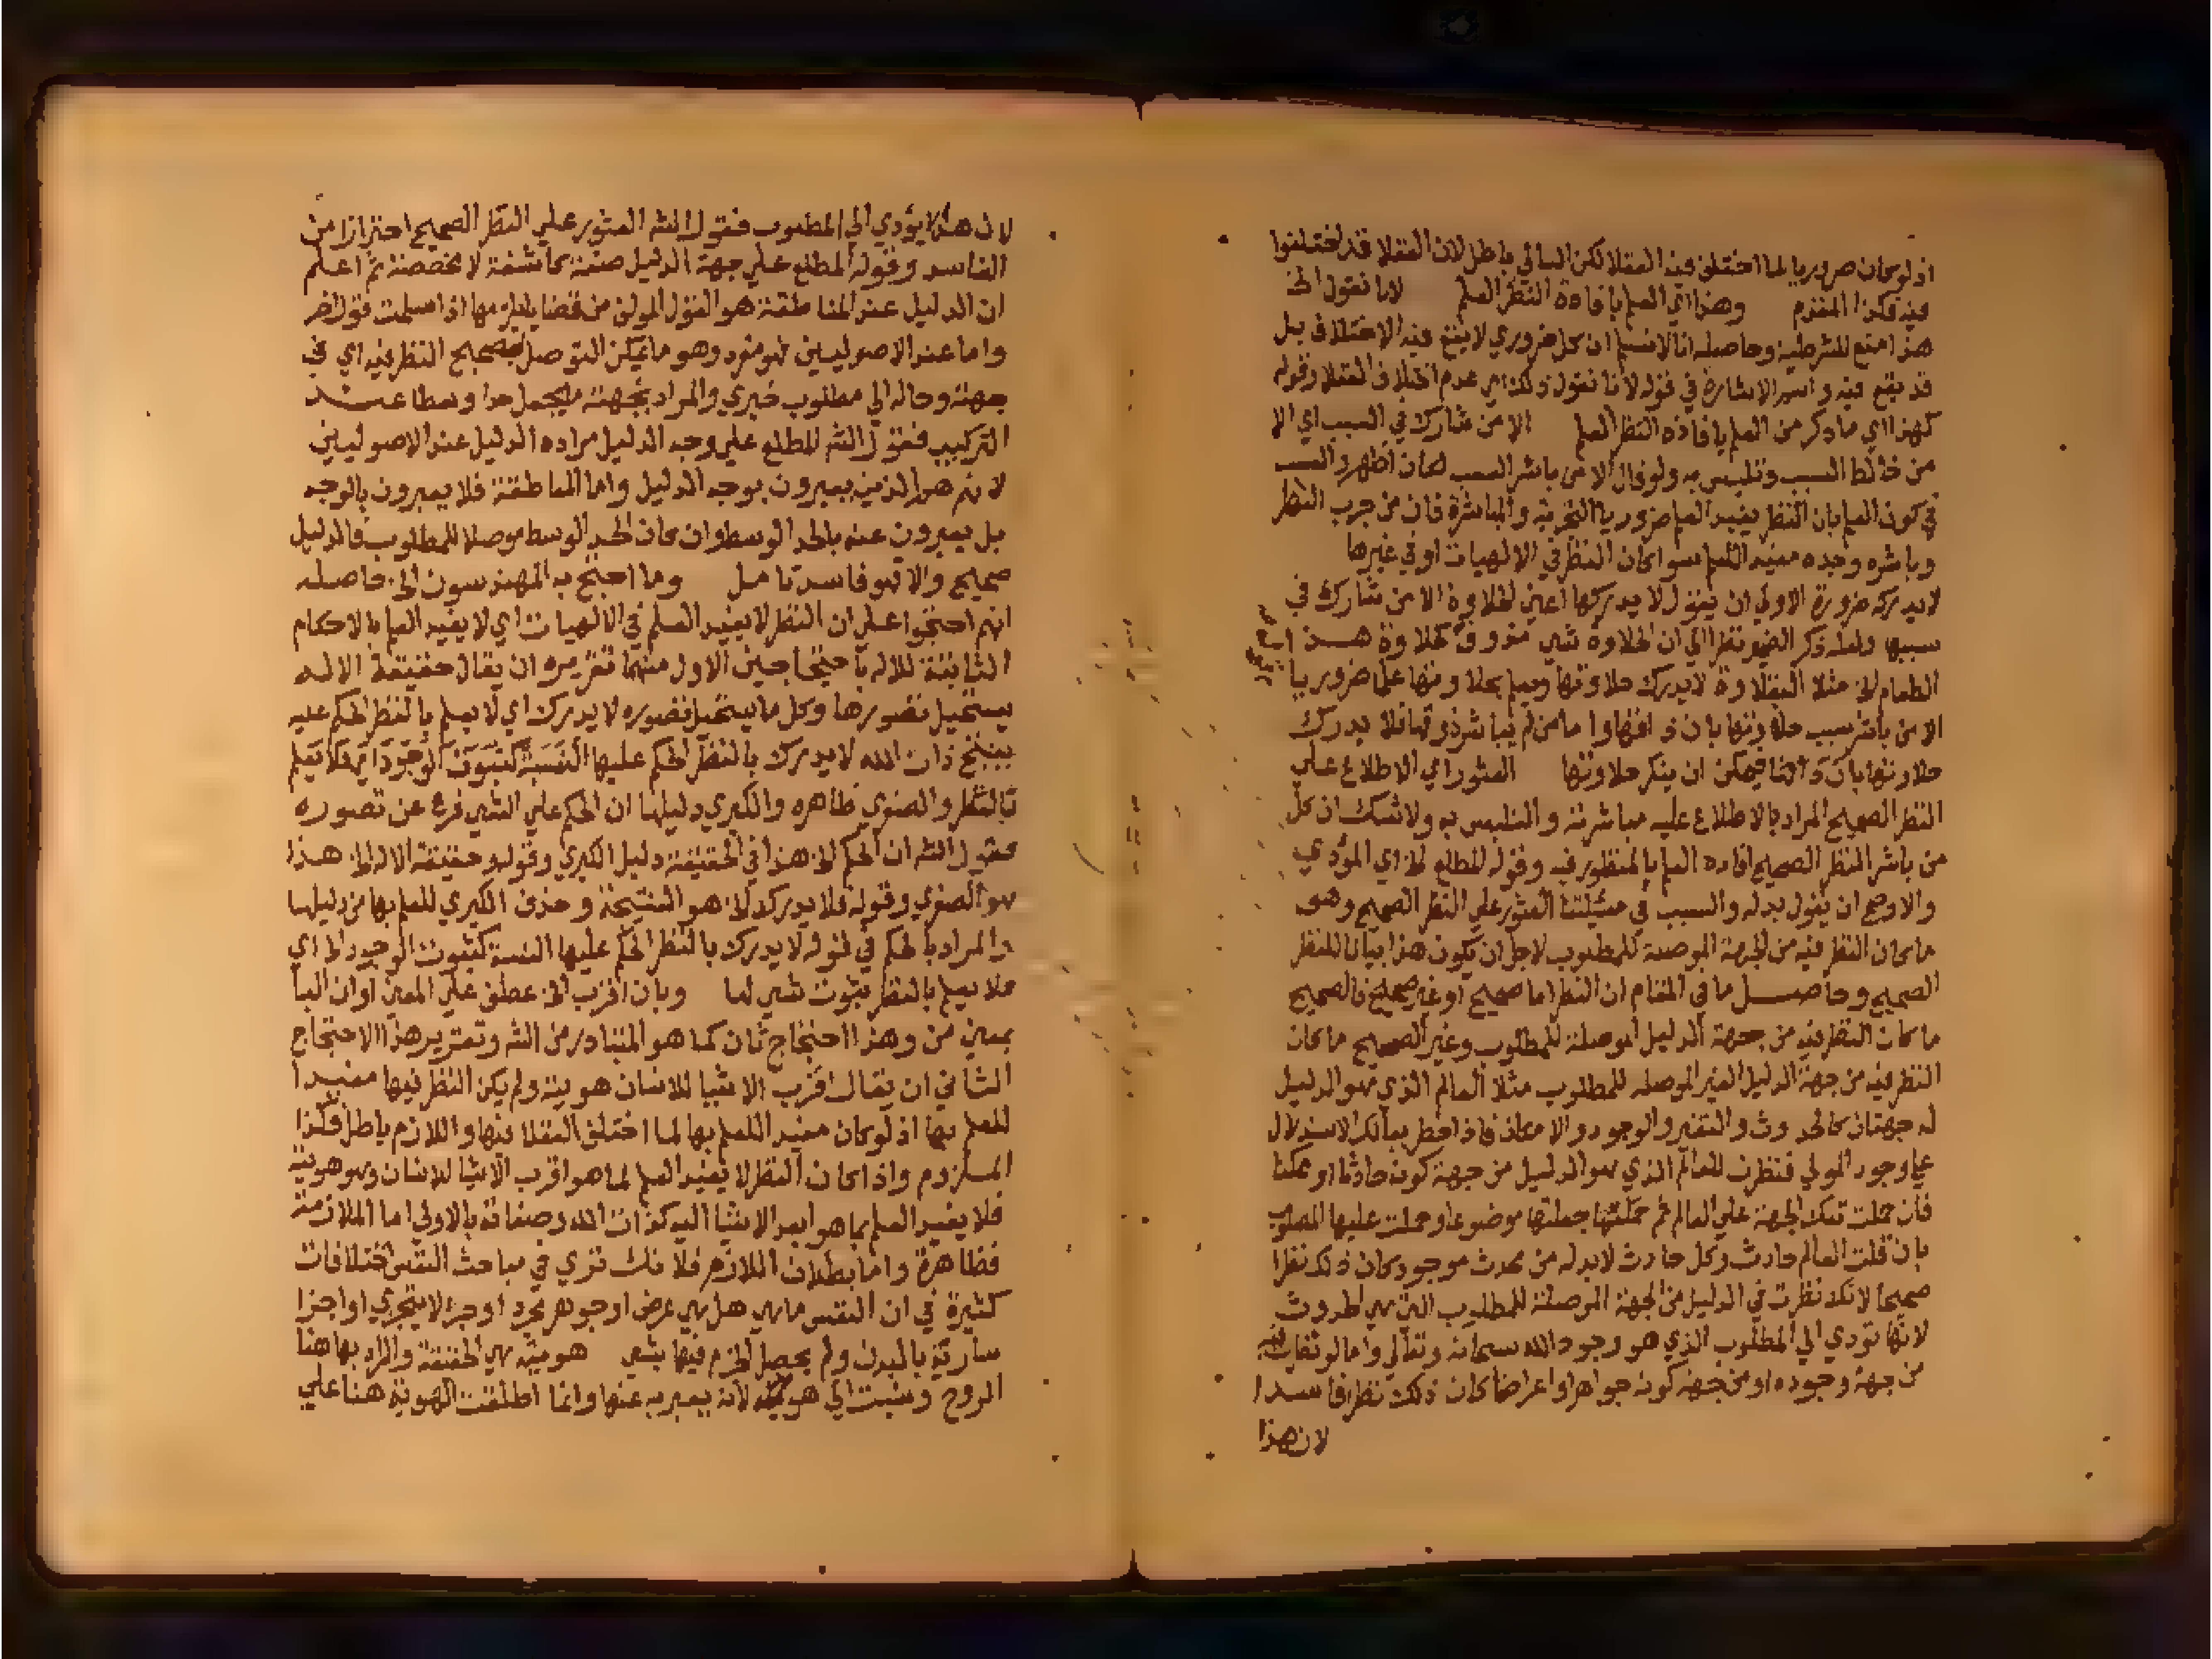 اذ لو كان ضروريا لما اختلف فيه العقلا لكن التالي باطل لان العقلا قد اختلفوا
فيه فكذا المقدم وهذا اي العلم بافادة النظر العلم لانا نقول الخ
هذا منع للشرطية وحاصله انا لا نسلم ان كل ضروري لا يقع فيه الاختلاف بل
قد يقع فيه واسم الاشارة في قوله لانا نقول ذلك اي عدم اختلاف العقلا وقوله
كهذا اي ما ذكر من العلم بافادة النظر العلم الا من شارك في السبب اي الا
من خالط السبب وتلبس به ولو قال الا من باشر السبب لكان اظهر والسبب
في كون العلم بان النظر يفيد العلم ضروريا التجربة والمباشرة فان من جرب النظر
وباشره وجده مفيد العلم سوا كان النظر في الالهيات او في غيرها
لا يدركه ضرورة الاولي ان يقول لا يدركها اعني الحلاوة الا من شارك في
سببها ولعله ذكر الضمير نظرا الي ان الحلاوة شي مذوق كحلاوة هذا
الطعام لان مثلا البقلاوة لا يدرك حلاوتها ويعلم بحلاوتها علما ضروريا
الا من باشر سبب حلاوتها بان ذاقها واما من لم يباشر ذوقها فلا يدرك
حلاوتها بان ذاقها فيمكن ان ينكر حلاوتها العثور اي الاطلاع علي
النظر الصحيح المراد بالاطلاع عليه مباشرته والتلبس به ولا شك ان كل
من باشر النظر الصحيح افاده العلم بالمنظور فيه وقوله المطلع الخ اي المؤدي
والاوضح ان يقول بدله والسبب في مسئلتنا العثور علي النظر الصحيح وهو
ما كان النظر فيه من الجهة الموصلة للمطلوب لاجل ان يكون هذا بيانا للنظر
الصحيح وحاصل ما في المقام ان النظر اما صحيح او غير صحيح فالصحيح
ما كان النظر فيه من جهة الدليل الموصلة للمطلوب وغير الصحيح ما كان
النظر فيه من جهة الدليل الغير الموصله للمطلوب مثلا العالم الذي هو الدليل
له جهتان كالحدوث والتغير والوجود والامكان فاذا خطر ببالك الاستدلال
علي وجود المولي فنظرت للعالم الذي هو الدليل من جهة كونه حادثا او ممكنا
فان حملت تلك الجهة علي العالم ثم حملتها جعلتها موضوعا وحملت عليها المطلوب
بان قلت العالم حادث وكل حادث لا بد له من محدث موجود كان ذلك نظرا
صحيحا لانك نظرت في الدليل من الجهة الموصلة للمطلوب التي هي الحدوث
لانها تودي الي المطلوب الذي هو وجود الله سبحانه وتعالي واما لو نظرت
من جهة وجوده او من جهة كونه جواهر او اعراضا كان ذلك نظرا فاسدا
لان هذا
لان هذا لا يؤدي الي المطلوب فقول الشه العثور علي النظر الصحيح احترازا من
الفاسد وقوله المطلع علي جهة الدليل صفة كاشفة لا مخصصة ثم اعلم
ان الدليل عند المناطقة هو القول المولف من قضايا يلزمها اذا سلمت قول اخر
واما عند الاصوليين فهو مفرد وهو ما يمكن التوصل بصحيح النظر فيه اي في
جهته وحاله الي مطلوب خبري والمراد بجهته ما يجعل حدا وسطا عند
التركيب فقول الشه المطلع علي وجه الدليل مراده الدليل عند الاصوليين
لانهم هم الذين يعبرون بوجه الدليل واما المناطقة فلا يعبرون بالوجه
بل يعبرون عنه بالحد الوسط وان كان الحد الوسط موصلا للمطلوب فالدليل
صحيح والا فهو فاسد تامل وما احتج به المهندسون الخ حاصله
انهم احتجوا علي ان النظر لا يفيد العلم في الالهيات اي لا يفيد العلم بالاحكام
الثابتة للاله باحتجاجين الاول منهما تقريره ان يقال حقيقة الاله
يستحيل تصورها وكل ما يستحيل تصوره لا يدرك اي لا يعلم بالنظر الحكم عليه
ينتج ذات الله لا يدرك بالنظر الحكم عليها النسبة كثبوت الوجود اي فلا يعلم
بالنظر والصغري ظاهره والكبري دليلها ان الحكم علي الشي فرع عن تصوره
فقول الشه ان الحكم الخ هذا في الحقيقة دليل الكبري وقوله وحقيقة الاله الخ هذا
هو الصغري وقوله فلا يدرك الخ هو النتيجة وحذف الكبري للعلم بها من دليلها
والمراد بالحكم في قوله لا يدرك بالنظر الحكم عليها النسبة كثبوت الوجود الخ اي
فلا يعلم بالنظر ثبوت شي لها وبان اقرب الخ عطف علي المعني او ان البا
بمعني من وهذا احتجاج ثان كما هو المتبادر من الشه وتقرير هذا الاحتجاج
الثاني ان يقال اقرب الاشيا للانسان هويته ولم يكن النظر فيها مفيدا
للعلم بها اذ لو كان مفيد اللعلم بها لما اختلف العقلا فيها واللازم باطل فكذا
الملزوم واذا كان النظر لا يفيد العلم لما هو اقرب الاشيا للانسان وهو هويته
فلا يفيد العلم بما هو ابعد الاشيا اليه كذات الله وصفاته بالاولي اما الملازمة
فظاهرة واما بطلان اللازم فلانك تري في مباحث النفس اختلافات
كثيرة في ان النفس ما هي هل هي عرض او جوهر مجرد او جزء لا يتجزي او اجزا
سارية بالبدن ولم يحصل الجزم فيها بشي هويته هي الحقيقة والمراد بها هنا
الروح ونسبت الي هو لانه يعبر به عنها وانما اطلقت الهوية هنا علي